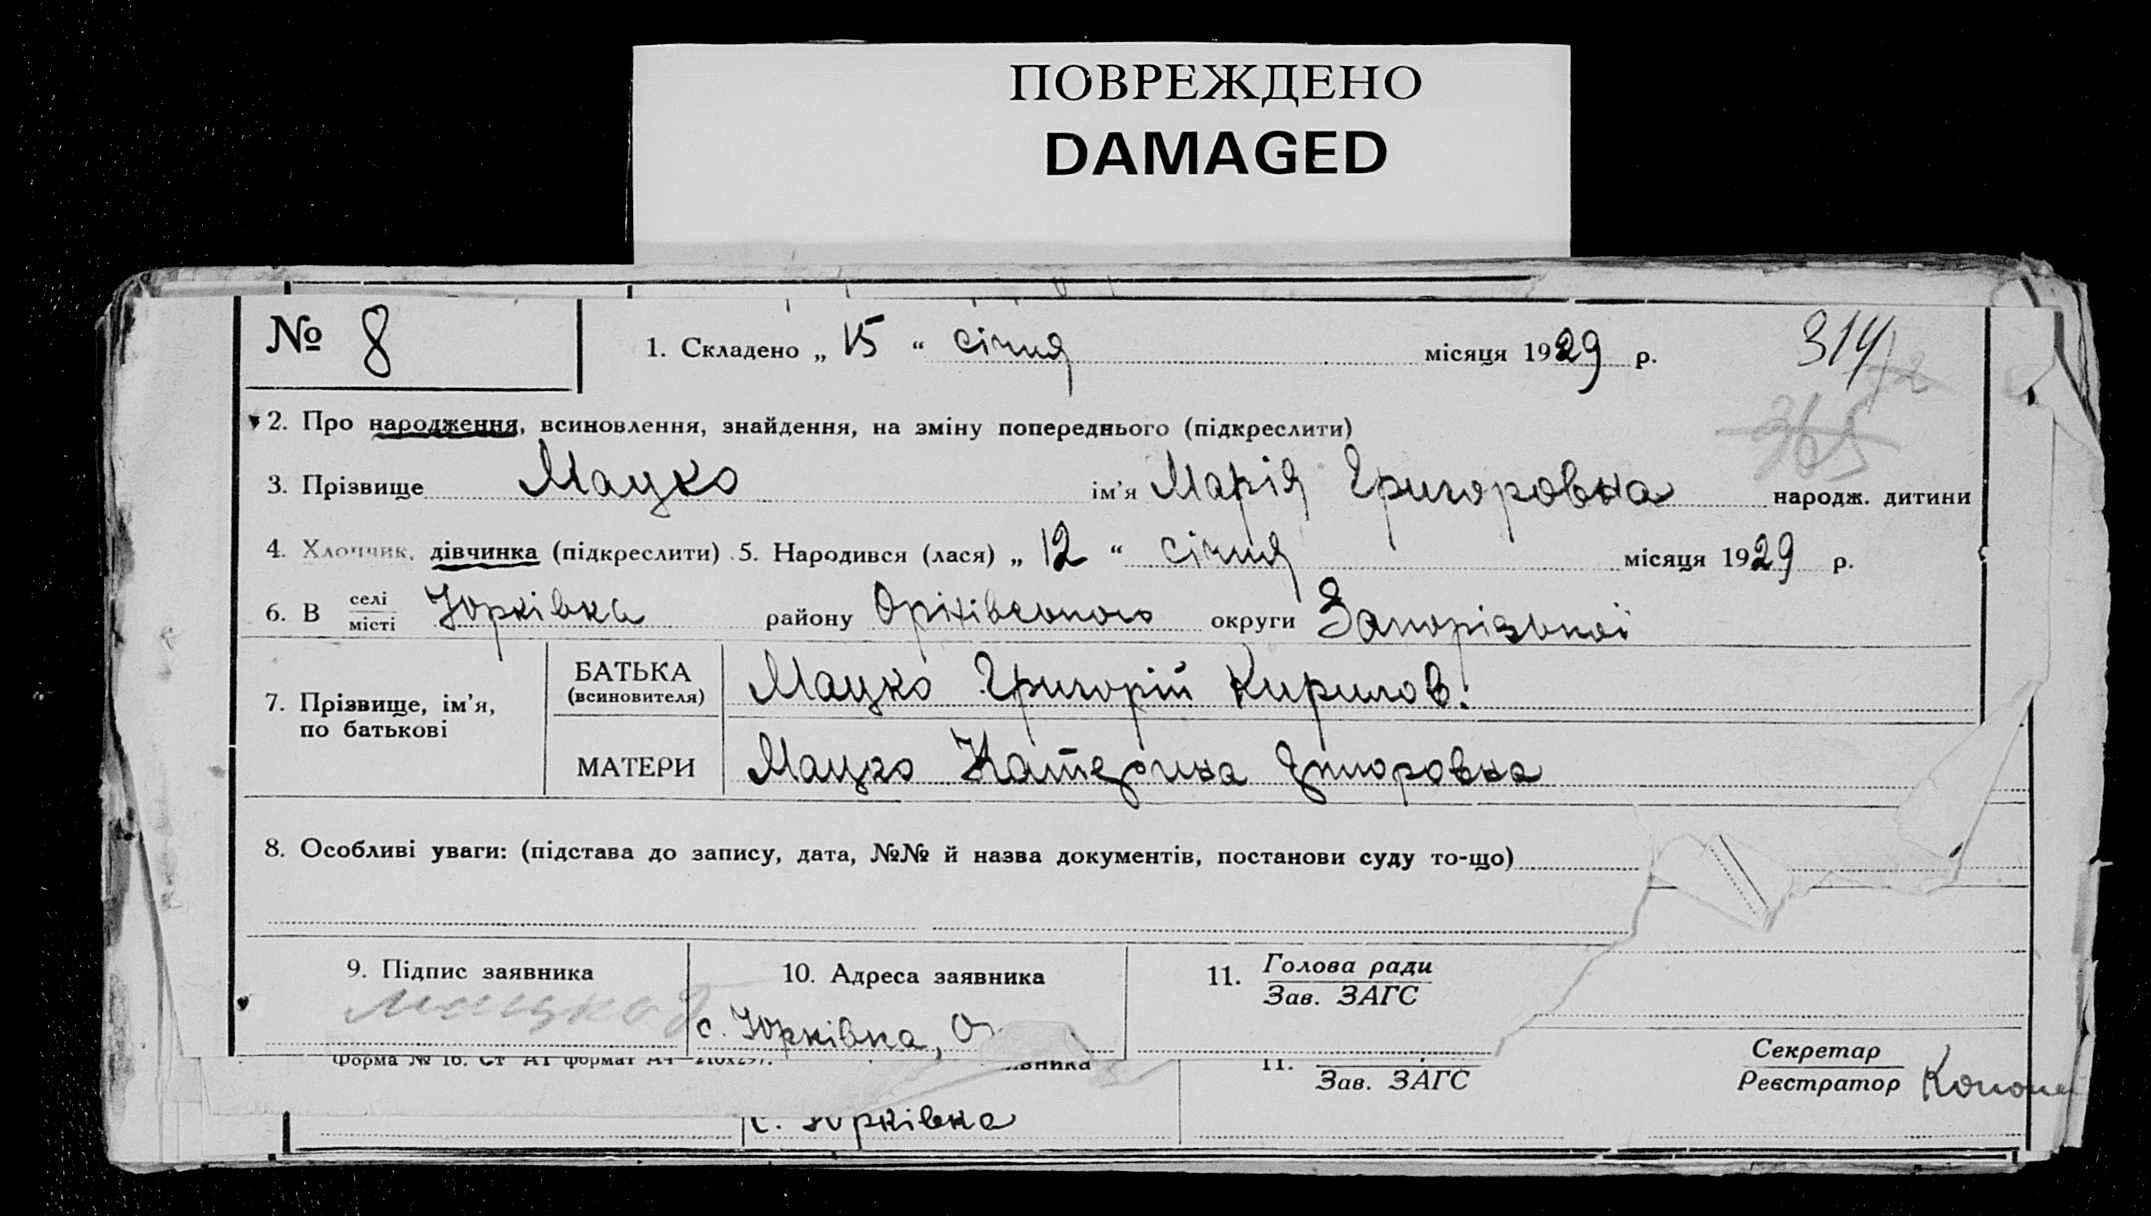 ПОВРЕЖДЕНО
DAMAGED
№ 8
1. Складено „ 15 “ січня місяця 1929 р.
314
365
2. Про народження, всиновлення, знайдення, на зміну попереднього (підкреслити)
3. Прізвище Мацко ім’я Марія Григоровна народж. дитини
4. Хлопчик, дівчинка (підкреслити) 5. Народився (лася) „ 12 “ січня місяця 1929 р.
6. В селі місті Юрківка району Оріхівського округи Запорізької
7. Прізвище, ім’я, по батькові
БАТЬКА (всиновителя) Мацко Григорій Кирилов.
МАТЕРИ Мацко Катерина
8. Особливі уваги: (підстава до запису, дата, №№ й назва документів, постанови суду то-що)
9. Підпис заявника
10. Адреса заявника
11. Голова ради
Зав. ЗАГС
Мацко
с. Юрківка, О
Форма № 16. Ст А1 формат А4—210х297.
11.
Зав. ЗАГС
Секретар
Реєстратор
с. Юрківка